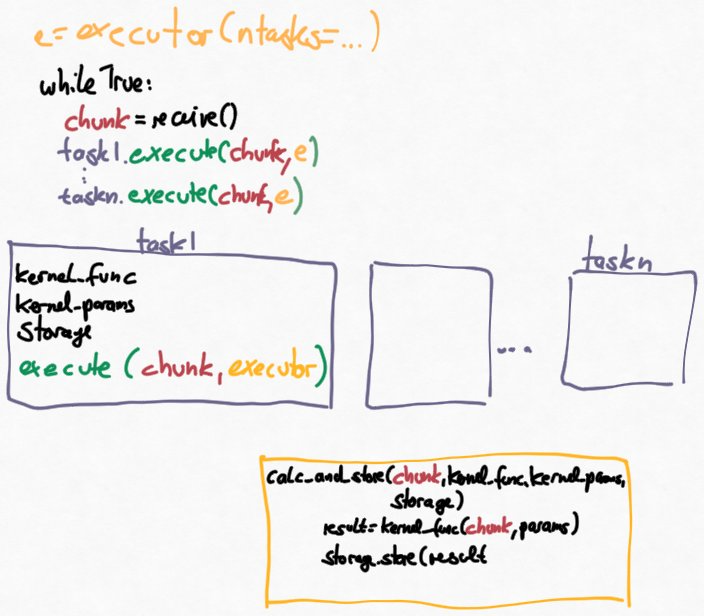 e=executor(ntasks=...)
while True:
chunk=receive()
task1.execute(chunk,e)
:
taskn.execute(chunk,e)
task1
kernel_func
kernel_params
Storage
execute (chunk, executor)
...
taskn
calc_and_store(chunk,kernel_func,kernel_params,
storage)
result=kernel_func(chunk,params)
storage.store(result